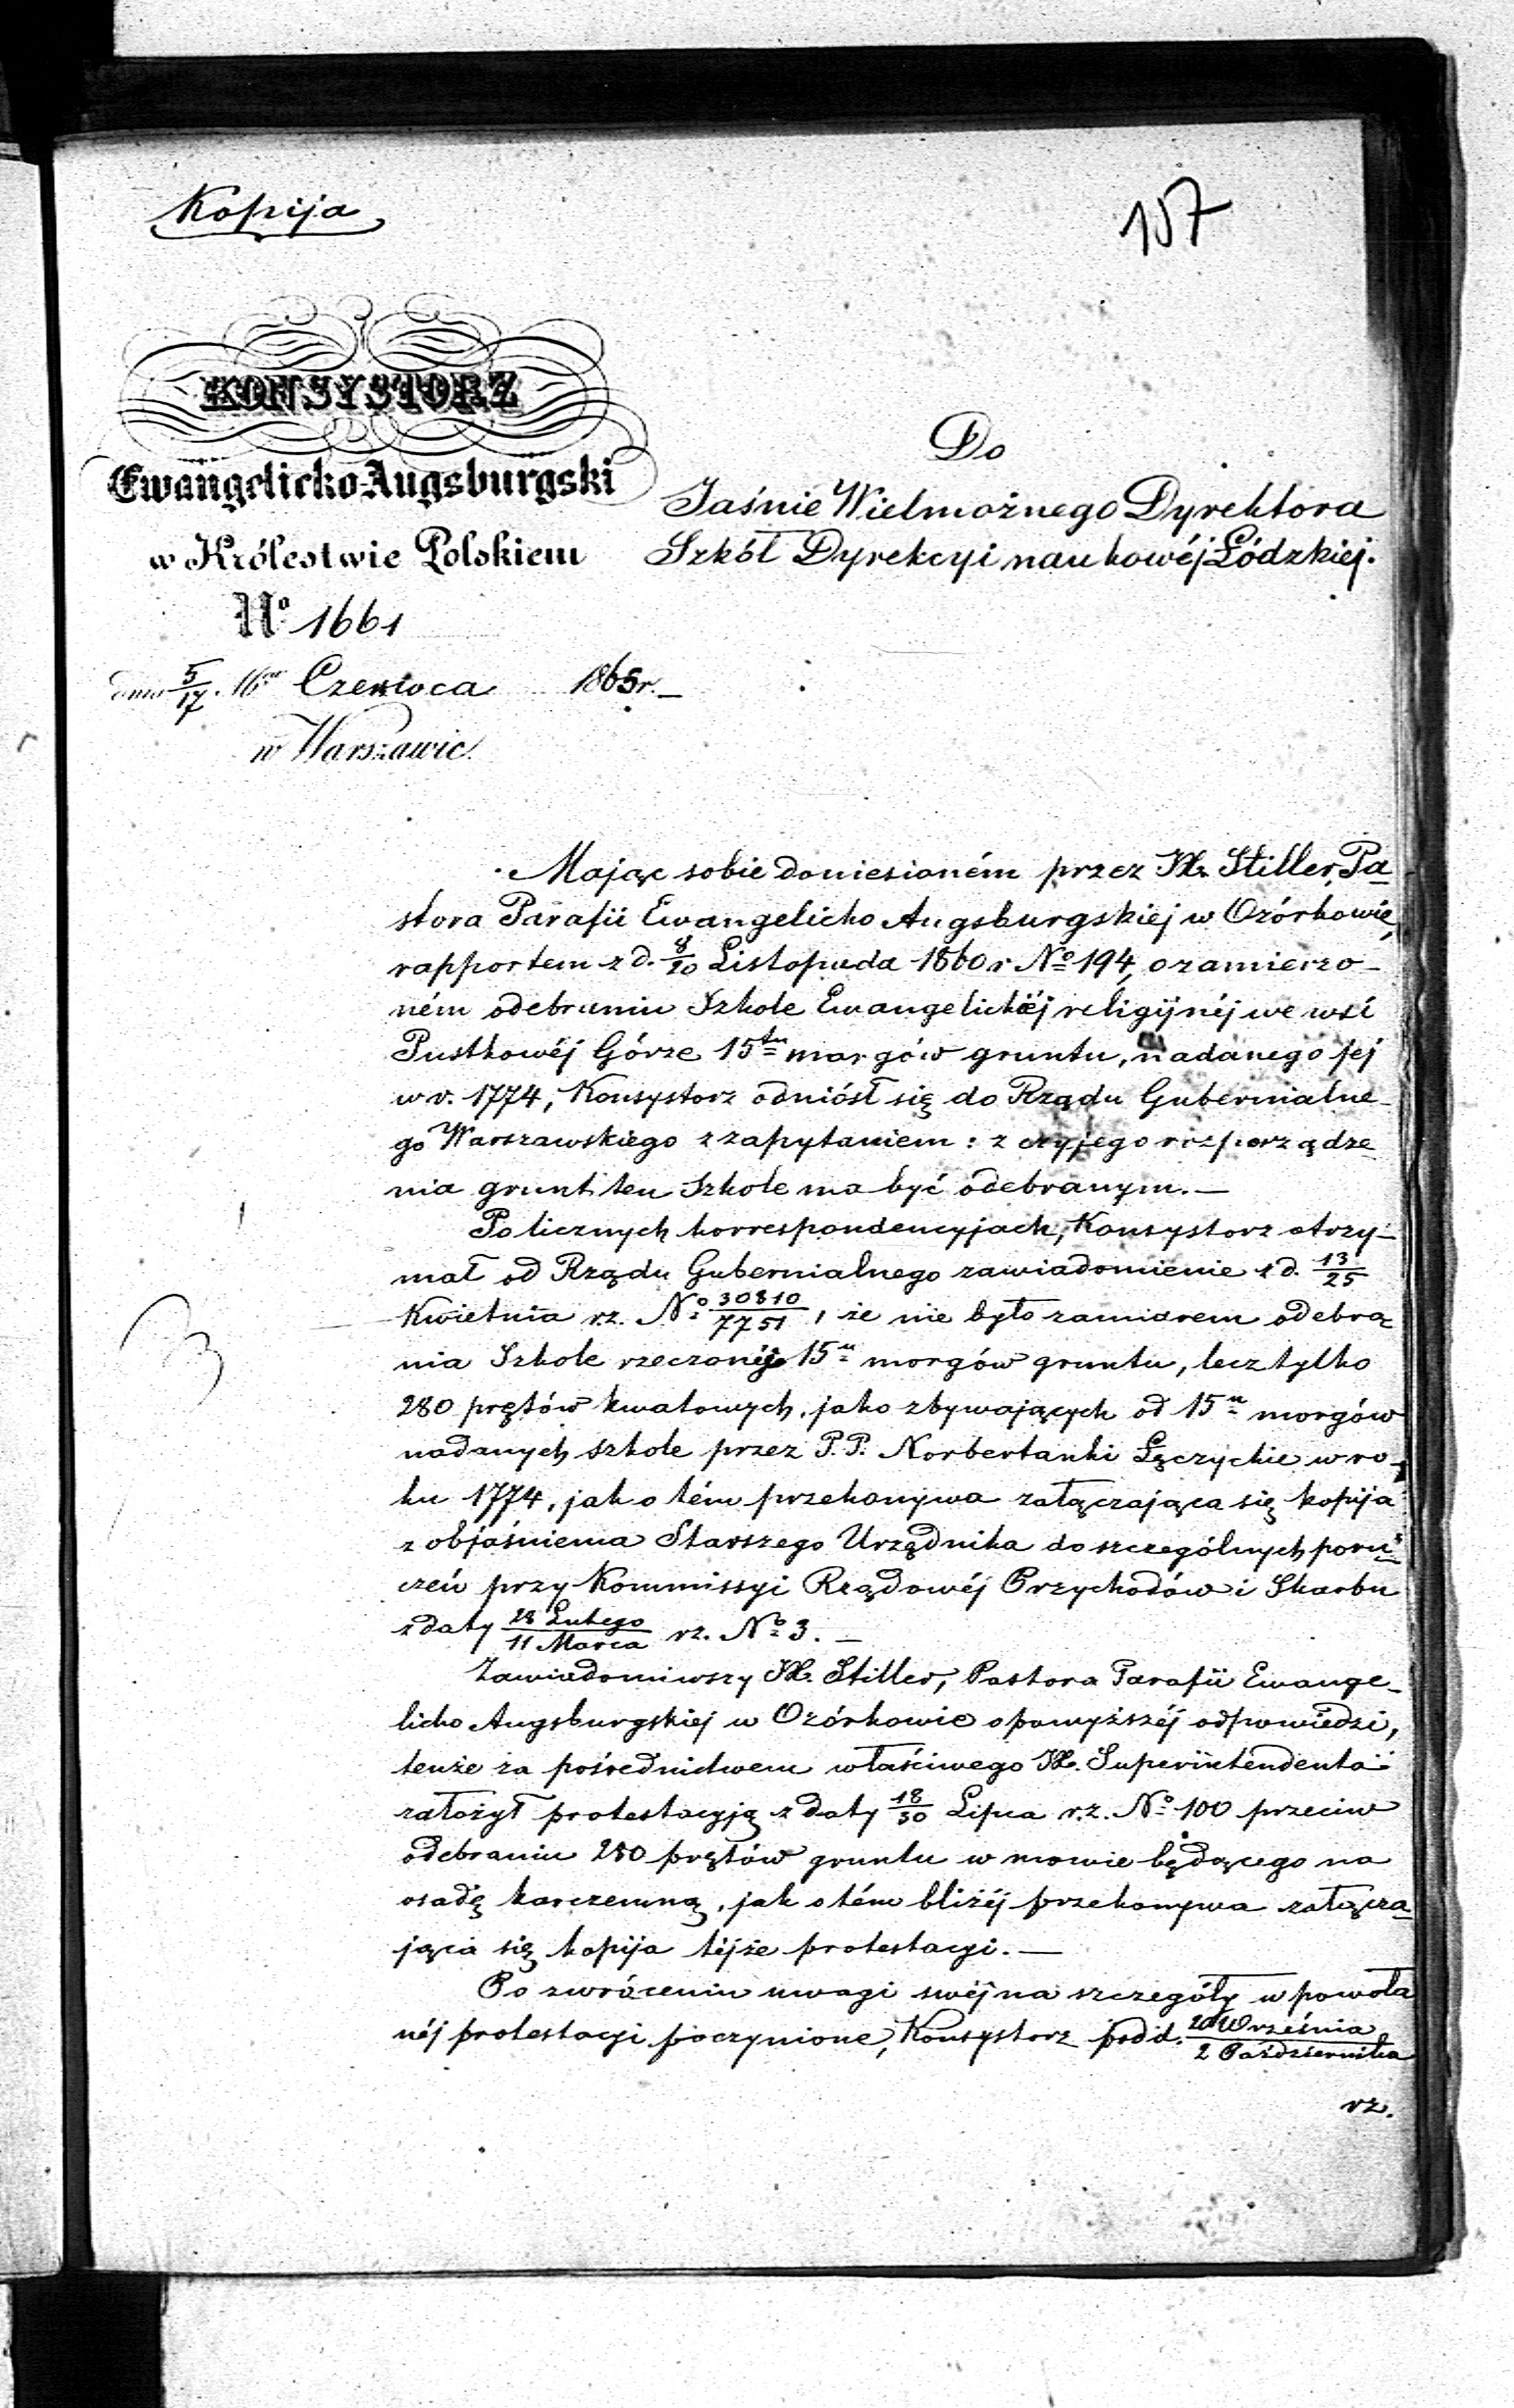 Kopija
157
KONSYSTORZ
Ewangelicko-Augsburgski
w Królestwie Polskiem
Do
Jaśnie Wielmożnego Dyrektora
Szkół Dyrekcyi naukowéj Łódzkiej.
No 1661
dnia 5/17 Czerwca 1865r.
w Warszawie.
Mając sobie doniesioném przez Xa Stiller, Pa-
stora Parafii Ewangelicko Augsburgskiej w Ozórkowie,
rapportem z d. 8/20 Listopada 1860 r No 194, o zamierzo-
ném odebraniu Szkole Ewangelickiéj religijnéj we wsi
Pustkowéj Górze 15tu morgów gruntu, nadanego jej
w r. 1774, Konsystorz odniósł się do Rządu Gubernialne-
go Warszawskiego z zapytaniem: z czyjego rozporządze-
nia grunt ten Szkole ma być odebranym.—
Po licznych korrespondencyjach, Konsystorz otrzy-
mał od Rządu Gubernialnego zawiadomienie z d. 13/25
Kwietnia rz. No 30810/7751, że nie było zamiarem odebra-
nia Szkole rzeczonéj 15u morgów gruntu, lecz tylko
280 prętów kwatowych, jako zbywających od 15u morgów
nadanych szkole przez P.P. Norbertanki Łęczyckie w ro-
ku 1774, jak o tém przekonywa załączająca się kopija
z objaśnienia Starszego Urzędnika do szczególnych poru-
czeń przy Kommissyi Rządowéj Przychodów i Skarbu
z daty 28 Lutego/11 Marca rz. No 3.—
Zawiadomiwszy Xa. Stiller, Pastora Parafii Ewange-
licko Augsburgskiej w Ozórkowie o powyższéj odpowiedzi,
tenże za pośrednictwem właściwego Xa. Superintendenta
założył protestacyją z daty 18/30 Lipca r.z. No 100 przeciw
odebraniu 280 prętów gruntu w mowie będącego na
osadę karczemną, jak o tém bliżéj przekonywa załącza-
jąca się kopija téjże protestacyi.—
Po zwróceniu uwagi swéj na szczegóły w powoła
néj protestacyi poczynione, Konsystorz pod d. 20 Września/2 Października
rz.